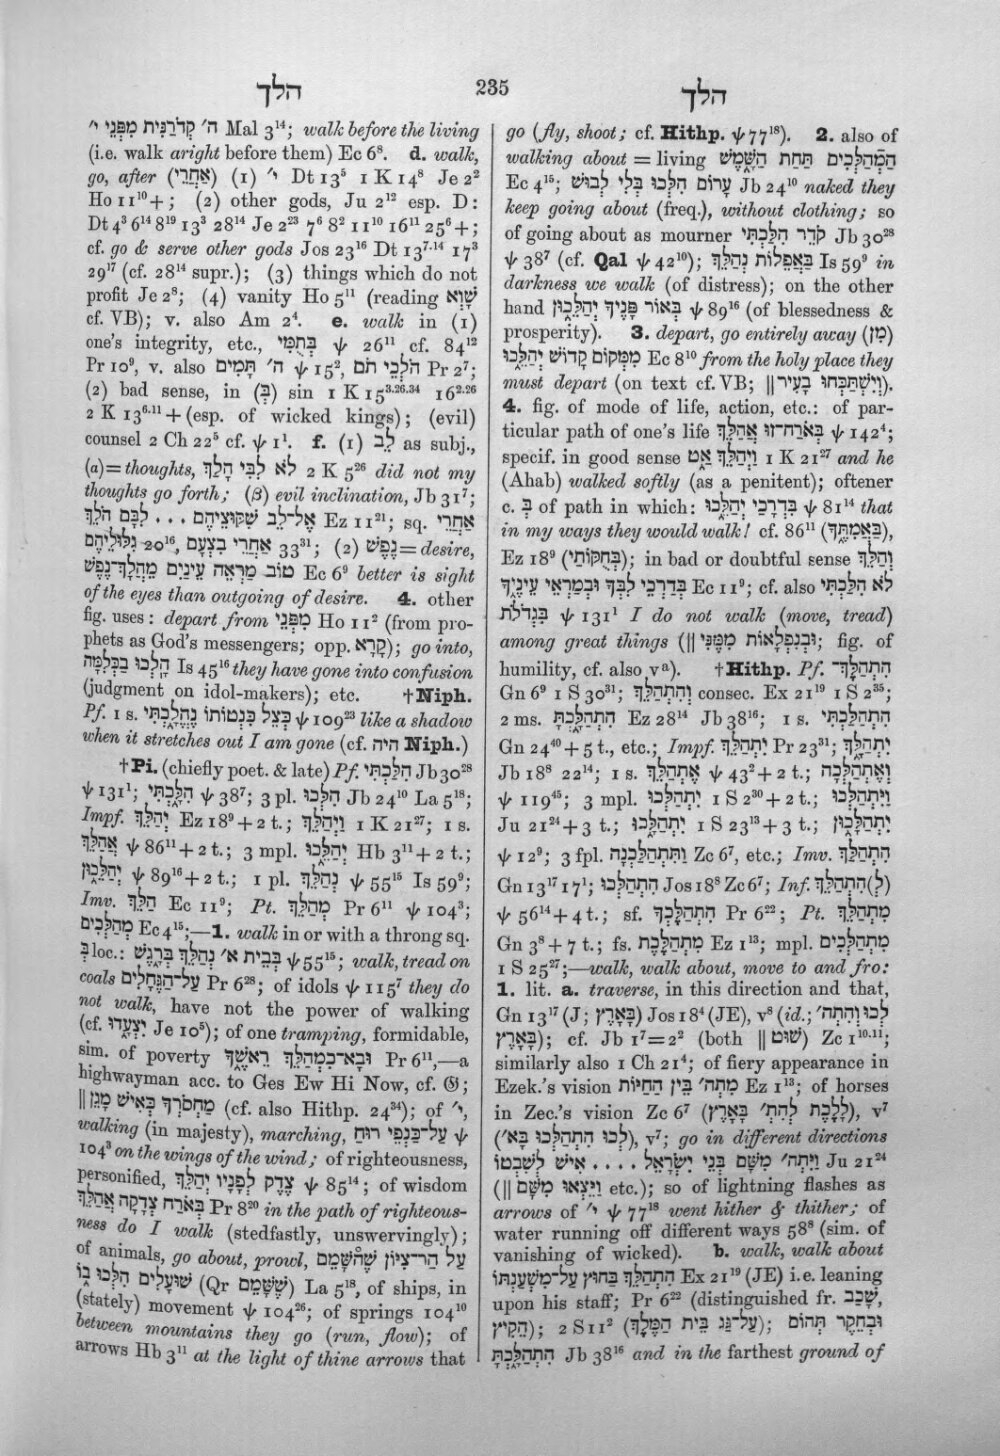 הלך 235 הלך
ה׳ קְדֹרַנִּית מִפְּנֵי י׳ Mal 3¹⁴; walk before the living
(i.e. walk aright before them) Ec 6⁸. d. walk,
go, after (אַחֲרֵי) (1) י׳ Dt 13⁵ 1 K 14⁸ Je 2²
Ho 11¹⁰+; (2) other gods, Ju 2¹² esp. D:
Dt 4³ 6¹⁴ 8¹⁹ 13³ 28¹⁴ Je 2²³ 7⁶ 8² 11¹⁰ 16¹¹ 25⁶+;
cf. go & serve other gods Jos 23¹⁶ Dt 13⁷·¹⁴ 17³
29¹⁷ (cf. 28¹⁴ supr.); (3) things which do not
profit Je 2⁸; (4) vanity Ho 5¹¹ (reading שָׁוְא
cf. VB); v. also Am 2⁴. e. walk in (1)
one's integrity, etc., בְּתֻמִּי ψ 26¹¹ cf. 84¹²
Pr 10⁹, v. also ה׳ תָּמִים ψ 15², הֹלְכֵי תֹם Pr 2⁷;
(2) bad sense, in (בְּ) sin 1 K 15³·²⁶·³⁴ 16²·²⁶
2 K 13⁶·¹¹+(esp. of wicked kings); (evil)
counsel 2 Ch 22⁵ cf. ψ 1¹. f. (1) לֵב as subj.,
(α)=thoughts, לֹא לִבִּי הָלַךְ 2 K 5²⁶ did not my
thoughts go forth; (β) evil inclination, Jb 31⁷;
אֶל־לֵב שִׁקּוּצֵיהֶם ... לִבָּם הֹלֵךְ Ez 11²¹; sq. אַחֲרֵי
גִּלּוּלֵיהֶם 20¹⁶, אַחֲרֵי בִצְעָם 33³¹; (2) נֶפֶשׁ=desire,
טוֹב מַרְאֵה עֵינַיִם מֵהֲלָךְ־נָפֶשׁ Ec 6⁹ better is sight
of the eyes than outgoing of desire. 4. other
fig. uses: depart from מִפְּנֵי Ho 11² (from pro-
phets as God's messengers; opp. קָרָא); go into,
הָלְכוּ בַכְּלִמָּה Is 45¹⁶ they have gone into confusion
(judgment on idol-makers); etc. †Niph.
Pf. 1 s. כְּצֵל כִּנְטוֹתוֹ נֶהֱלָכְתִּי ψ 109²³ like a shadow
when it stretches out I am gone (cf. היה Niph.)
†Pi. (chiefly poet. & late) Pf. הִלַּכְתִּי Jb 30²⁸
ψ 131¹; הִלָּכְתִּי ψ 38⁷; 3 pl. הִלְּכוּ Jb 24¹⁰ La 5¹⁸;
Impf. יְהַלֵּךְ Ez 18⁹+2 t.; וַיְהַלֵּךְ 1 K 21²⁷; 1 s.
אֲהַלֵּךְ ψ 86¹¹+2 t.; 3 mpl. יְהַלֵּכוּ Hb 3¹¹+2 t.;
יְהַלֵּכוּן ψ 89¹⁶+2 t.; 1 pl. נְהַלֵּךְ ψ 55¹⁵ Is 59⁹;
Imv. הַלֵּךְ Ec 11⁹; Pt. מְהַלֵּךְ Pr 6¹¹ ψ 104³;
מְהַלְּכִים Ec 4¹⁵;—1. walk in or with a throng sq.
בְּ loc.: בְּבֵית א׳ נְהַלֵּךְ בְּרָגֶשׁ ψ 55¹⁵; walk, tread on
coals עַל־הַגֶּחָלִים Pr 6²⁸; of idols ψ 115⁷ they do
not walk, have not the power of walking
(cf. יִצְעָדוּ Je 10⁵); of one tramping, formidable,
sim. of poverty וּבָא־כִמְהַלֵּךְ רֵאשֶׁךָ Pr 6¹¹,—a
highwayman acc. to Ges Ew Hi Now, cf. 𝔊;
‖ מַחְסֹרְךָ כְּאִישׁ מָגֵן (cf. also Hithp. 24³⁴); of י׳,
walking (in majesty), marching, עַל־כַּנְפֵי רוּחַ ψ
104³ on the wings of the wind; of righteousness,
personified, צֶדֶק לְפָנָיו יְהַלֵּךְ ψ 85¹⁴; of wisdom
בְּאֹרַח צְדָקָה אֲהַלֵּךְ Pr 8²⁰ in the path of righteous-
ness do I walk (stedfastly, unswervingly);
of animals, go about, prowl, עַל הַר־צִיּוֹן שֶׁהַשָּׁמֵם
שׁוּעָלִים הִלְּכוּ בוֹ (Qr שֶׁשָּׁמֵם) La 5¹⁸, of ships, in
(stately) movement ψ 104²⁶; of springs 104¹⁰
between mountains they go (run, flow); of
arrows Hb 3¹¹ at the light of thine arrows that
go (fly, shoot; cf. Hithp. ψ 77¹⁸). 2. also of
walking about = living הַמְהַלְּכִים תַּחַת הַשָּׁמֶשׁ
Ec 4¹⁵; עָרוֹם הִלְּכוּ בְּלִי לְבוּשׁ Jb 24¹⁰ naked they
keep going about (freq.), without clothing; so
of going about as mourner קֹדֵר הִלַּכְתִּי Jb 30²⁸
ψ 38⁷ (cf. Qal ψ 42¹⁰); בָּאֲפֵלוֹת נְהַלֵּךְ Is 59⁹ in
darkness we walk (of distress); on the other
hand בְּאוֹר פָּנֶיךָ יְהַלֵּכוּן ψ 89¹⁶ (of blessedness &
prosperity). 3. depart, go entirely away (מִן)
מִמְּקוֹם קָדוֹשׁ יְהַלֵּכוּ Ec 8¹⁰ from the holy place they
must depart (on text cf. VB; ‖ וְיִשְׁתַּכְּחוּ בָעִיר).
4. fig. of mode of life, action, etc.: of par-
ticular path of one's life בְּאֹרַח־זוּ אֲהַלֵּךְ ψ 142⁴;
specif. in good sense וַיְהַלֵּךְ אַט 1 K 21²⁷ and he
(Ahab) walked softly (as a penitent); oftener
c. בְּ of path in which: בִּדְרָכַי יְהַלֵּכוּ ψ 81¹⁴ that
in my ways they would walk! cf. 86¹¹ (בַּאֲמִתֶּךָ),
Ez 18⁹ (בְּחֻקּוֹתַי); in bad or doubtful sense וְהַלֵּךְ
בְּדַרְכֵי לִבְּךָ וּבְמַרְאֵי עֵינֶיךָ Ec 11⁹; cf. also לֹא הִלַּכְתִּי
בִּגְדֹלֹת ψ 131¹ I do not walk (move, tread)
among great things (‖ וּבְנִפְלָאוֹת מִמֶּנִּי; fig. of
humility, cf. also vᵃ). †Hithp. Pf. הִתְהַלֶּךְ־
Gn 6⁹ 1 S 30³¹; וְהִתְהַלֵּךְ consec. Ex 21¹⁹ 1 S 2³⁵;
2 ms. הִתְהַלָּכְתָּ Ez 28¹⁴ Jb 38¹⁶; 1 s. הִתְהַלַּכְתִּי
Gn 24⁴⁰+5 t., etc.; Impf. יִתְהַלֵּךְ Pr 23³¹; יִתְהַלָּךְ
Jb 18⁸ 22¹⁴; 1 s. אֶתְהַלֵּךְ ψ 43²+2 t.; וְאֶתְהַלְּכָה
ψ 119⁴⁵; 3 mpl. יִתְהַלְּכוּ 1 S 2³⁰+2 t.; וַיִּתְהַלְּכוּ
Ju 21²⁴+3 t.; יִתְהַלָּכוּ 1 S 23¹³+3 t.; יִתְהַלָּכוּן
ψ 12⁹; 3 fpl. וַתִּתְהַלַּכְנָה Zc 6⁷, etc.; Imv. הִתְהַלֵּךְ
Gn 13¹⁷ 17¹; הִתְהַלְּכוּ Jos 18⁸ Zc 6⁷; Inf. הִתְהַלֵּךְ(לְ)
ψ 56¹⁴+4 t.; sf. הִתְהַלֶּכְךָ Pr 6²²; Pt. מִתְהַלֵּךְ
Gn 3⁸+7 t.; fs. מִתְהַלֶּכֶת Ez 1¹³; mpl. מִתְהַלְּכִים
1 S 25²⁷;—walk, walk about, move to and fro:
1. lit. a. traverse, in this direction and that,
Gn 13¹⁷ (J; בָּאָרֶץ) Jos 18⁴ (JE), v⁸ (id.; לְכוּ וְהִתְה׳
בָּאָרֶץ); cf. Jb 1⁷=2² (both ‖ שׁוּט) Zc 1¹⁰·¹¹;
similarly also 1 Ch 21⁴; of fiery appearance in
Ezek.'s vision מִתְה׳ בֵּין הַחַיּוֹת Ez 1¹³; of horses
in Zec.'s vision Zc 6⁷ (לָלֶכֶת לְהִת׳ בָּאָרֶץ), v⁷
(לְכוּ הִתְהַלְּכוּ בָא׳), v⁷; go in different directions
וַיִּתְה׳ מִשָּׁם בְּנֵי יִשְׂרָאֵל .... אִישׁ לְשִׁבְטוֹ Ju 21²⁴
(‖ וַיֵּצְאוּ מִשָּׁם etc.); so of lightning flashes as
arrows of י׳ ψ 77¹⁸ went hither & thither; of
water running off different ways 58⁸ (sim. of
vanishing of wicked). b. walk, walk about
הִתְהַלֵּךְ בַּחוּץ עַל־מִשְׁעַנְתּוֹ Ex 21¹⁹ (JE) i.e. leaning
upon his staff; Pr 6²² (distinguished fr. שָׁכַב,
הֵקִיץ); 2 S 11² (עַל־גַּג בֵּית הַמֶּלֶךְ); וּבְחֵקֶר תְּהוֹם
הִתְהַלָּכְתָּ Jb 38¹⁶ and in the farthest ground of